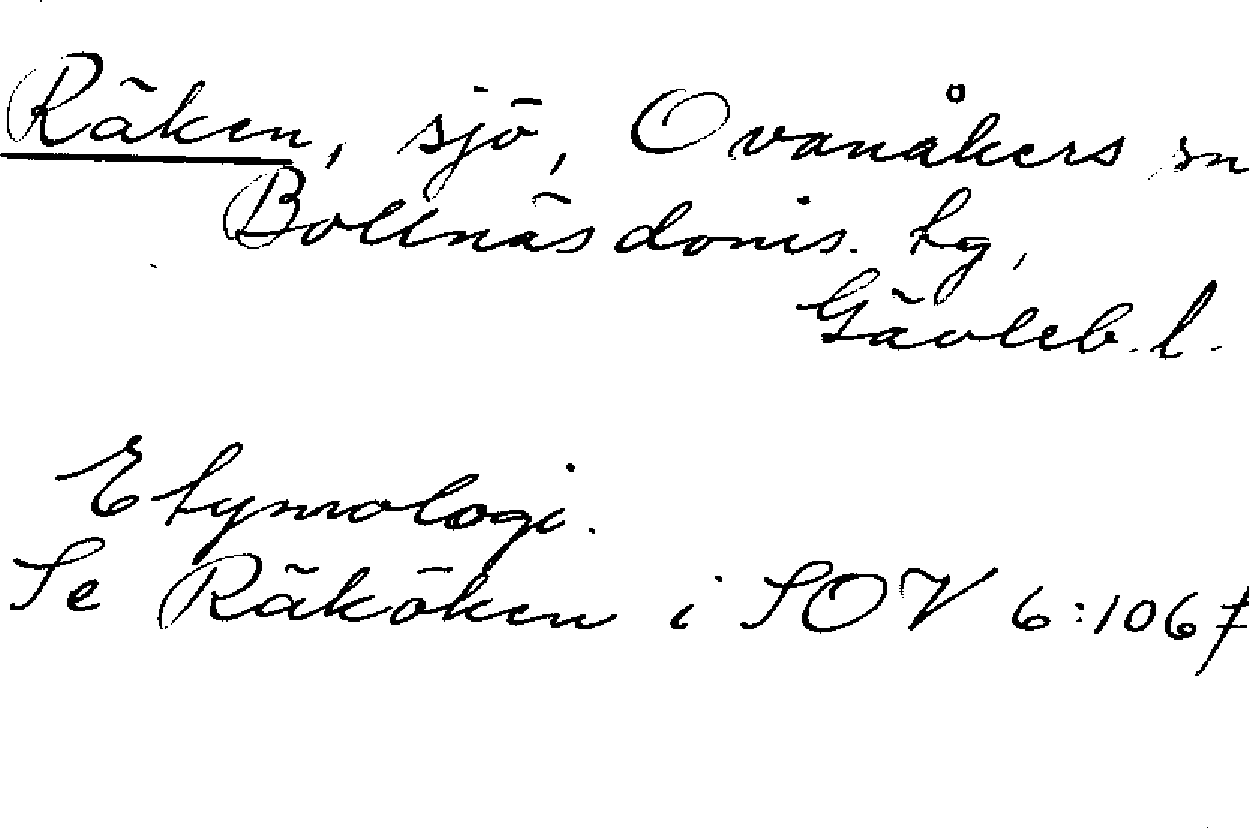 Räken, sjö, Ovanåkers sn
Bollnäs doms. tg,
Gävleb. l.
Etymologi.
Se Räköken i SOV 6:1067